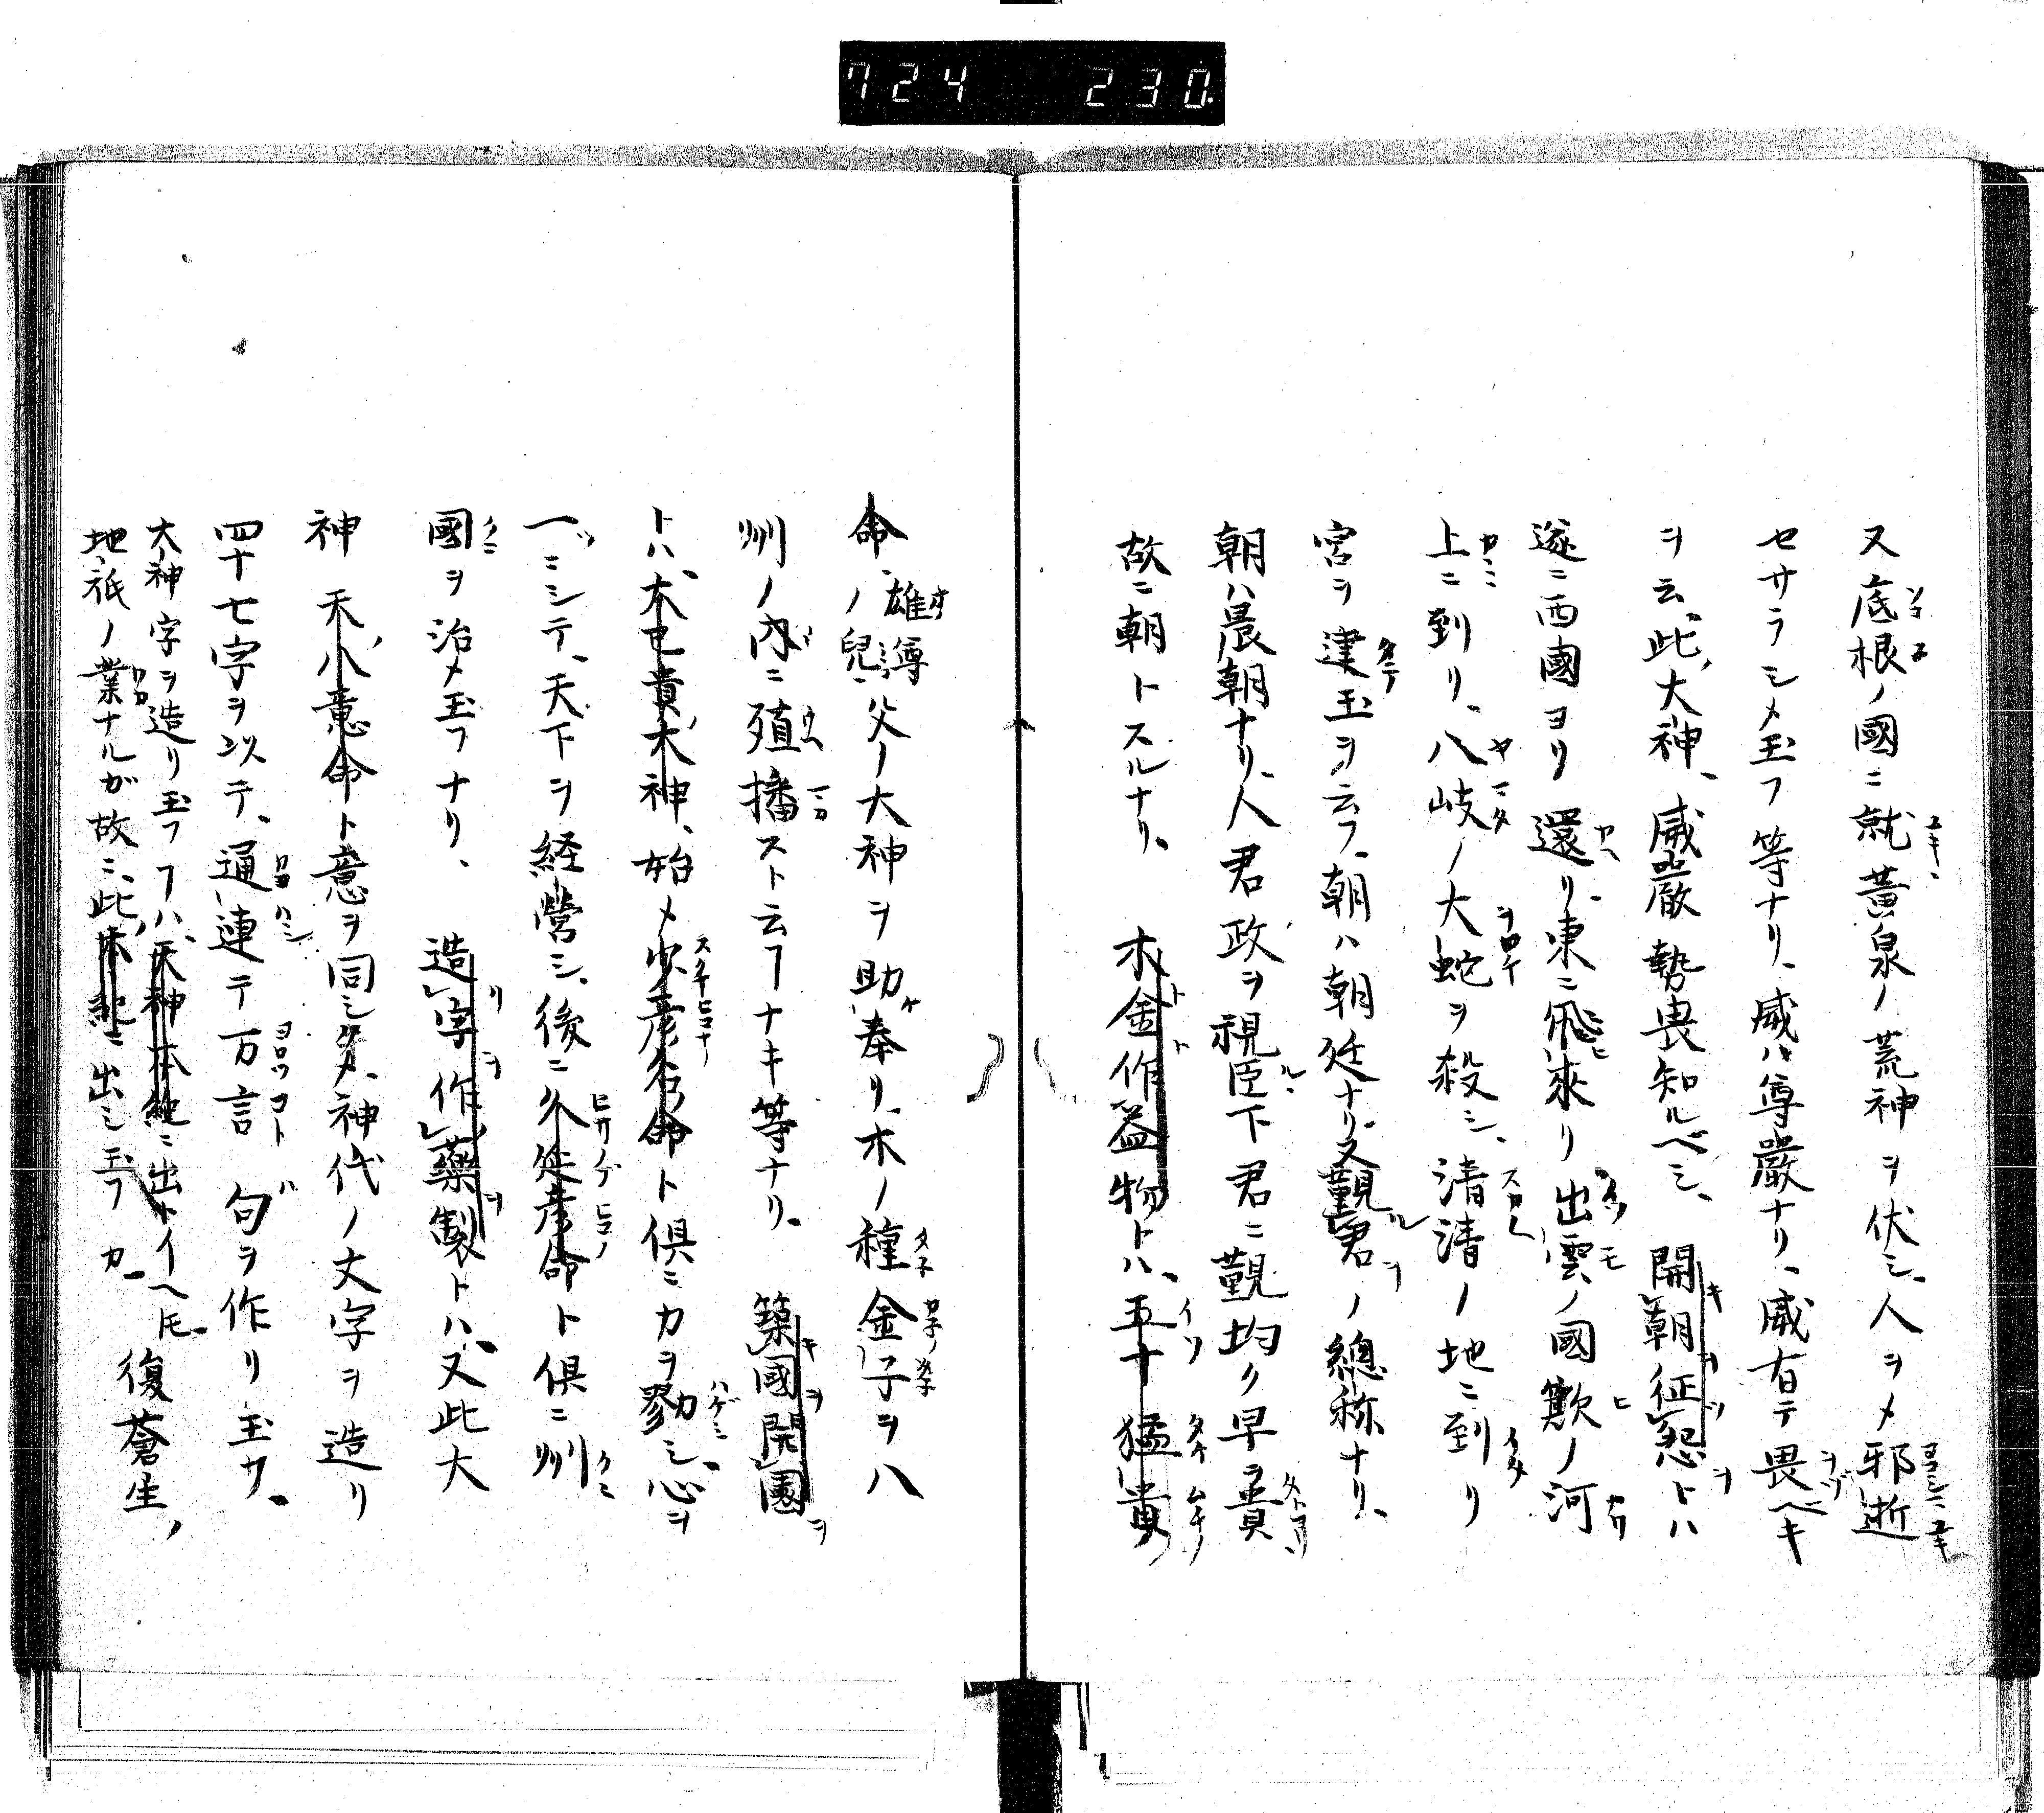 724 230.
又底根ノ國ニ就黃泉ノ荒神ヲ伏シ、人ヲメ邪逝
セサラシメ玉フ等ナリ、威ハ尊嚴ナリ、威有テ畏ベキ
ヲ云、此大神、威嚴勢畏知ルベシ、開朝征怨トハ
遂ニ西國ヨリ還リ、東ニ飛來リ出雲ノ國簸ノ河
上ニ到リ、八岐ノ大蛇ヲ殺シ、清清ノ地ニ到リ
宮ヲ建玉ヲ云フ、朝ハ朝廷ナリ、又覲君ノ總称ナリ、
朝ハ晨朝ナリ、人君政ヲ視臣下君ニ覲均ク早ヲ貴
故ニ朝トスルナリ、木金作益物トハ、五十猛貴
命、雄尊ノ兒、父ノ大神ヲ助奉リ、木ノ種金子ヲ八
州ノ內ニ殖播スト云フナキ等ナリ。築國開國
トハ、大已貴大神、始メ少彦名命ト俱ニカヲ勠シ心ヲ
一ニシテ、天下ヲ経營シ、後ニ久延彦命ト俱ニ州
國ヲ治メ玉フナリ、造字作藥製トハ、又此大
神天八意命ト意ヲ同シメ、神代ノ文字ヲ造リ
四十七字ヲ以テ、通連テ万言句ヲ作リ玉フ。
大神字ヲ造リ玉フヿハ、天神本紀ニ出トイヘ𪜈
地祇ノ業ナルガ故ニ、此本紀ニ出シ玉フカ 復蒼生ノ